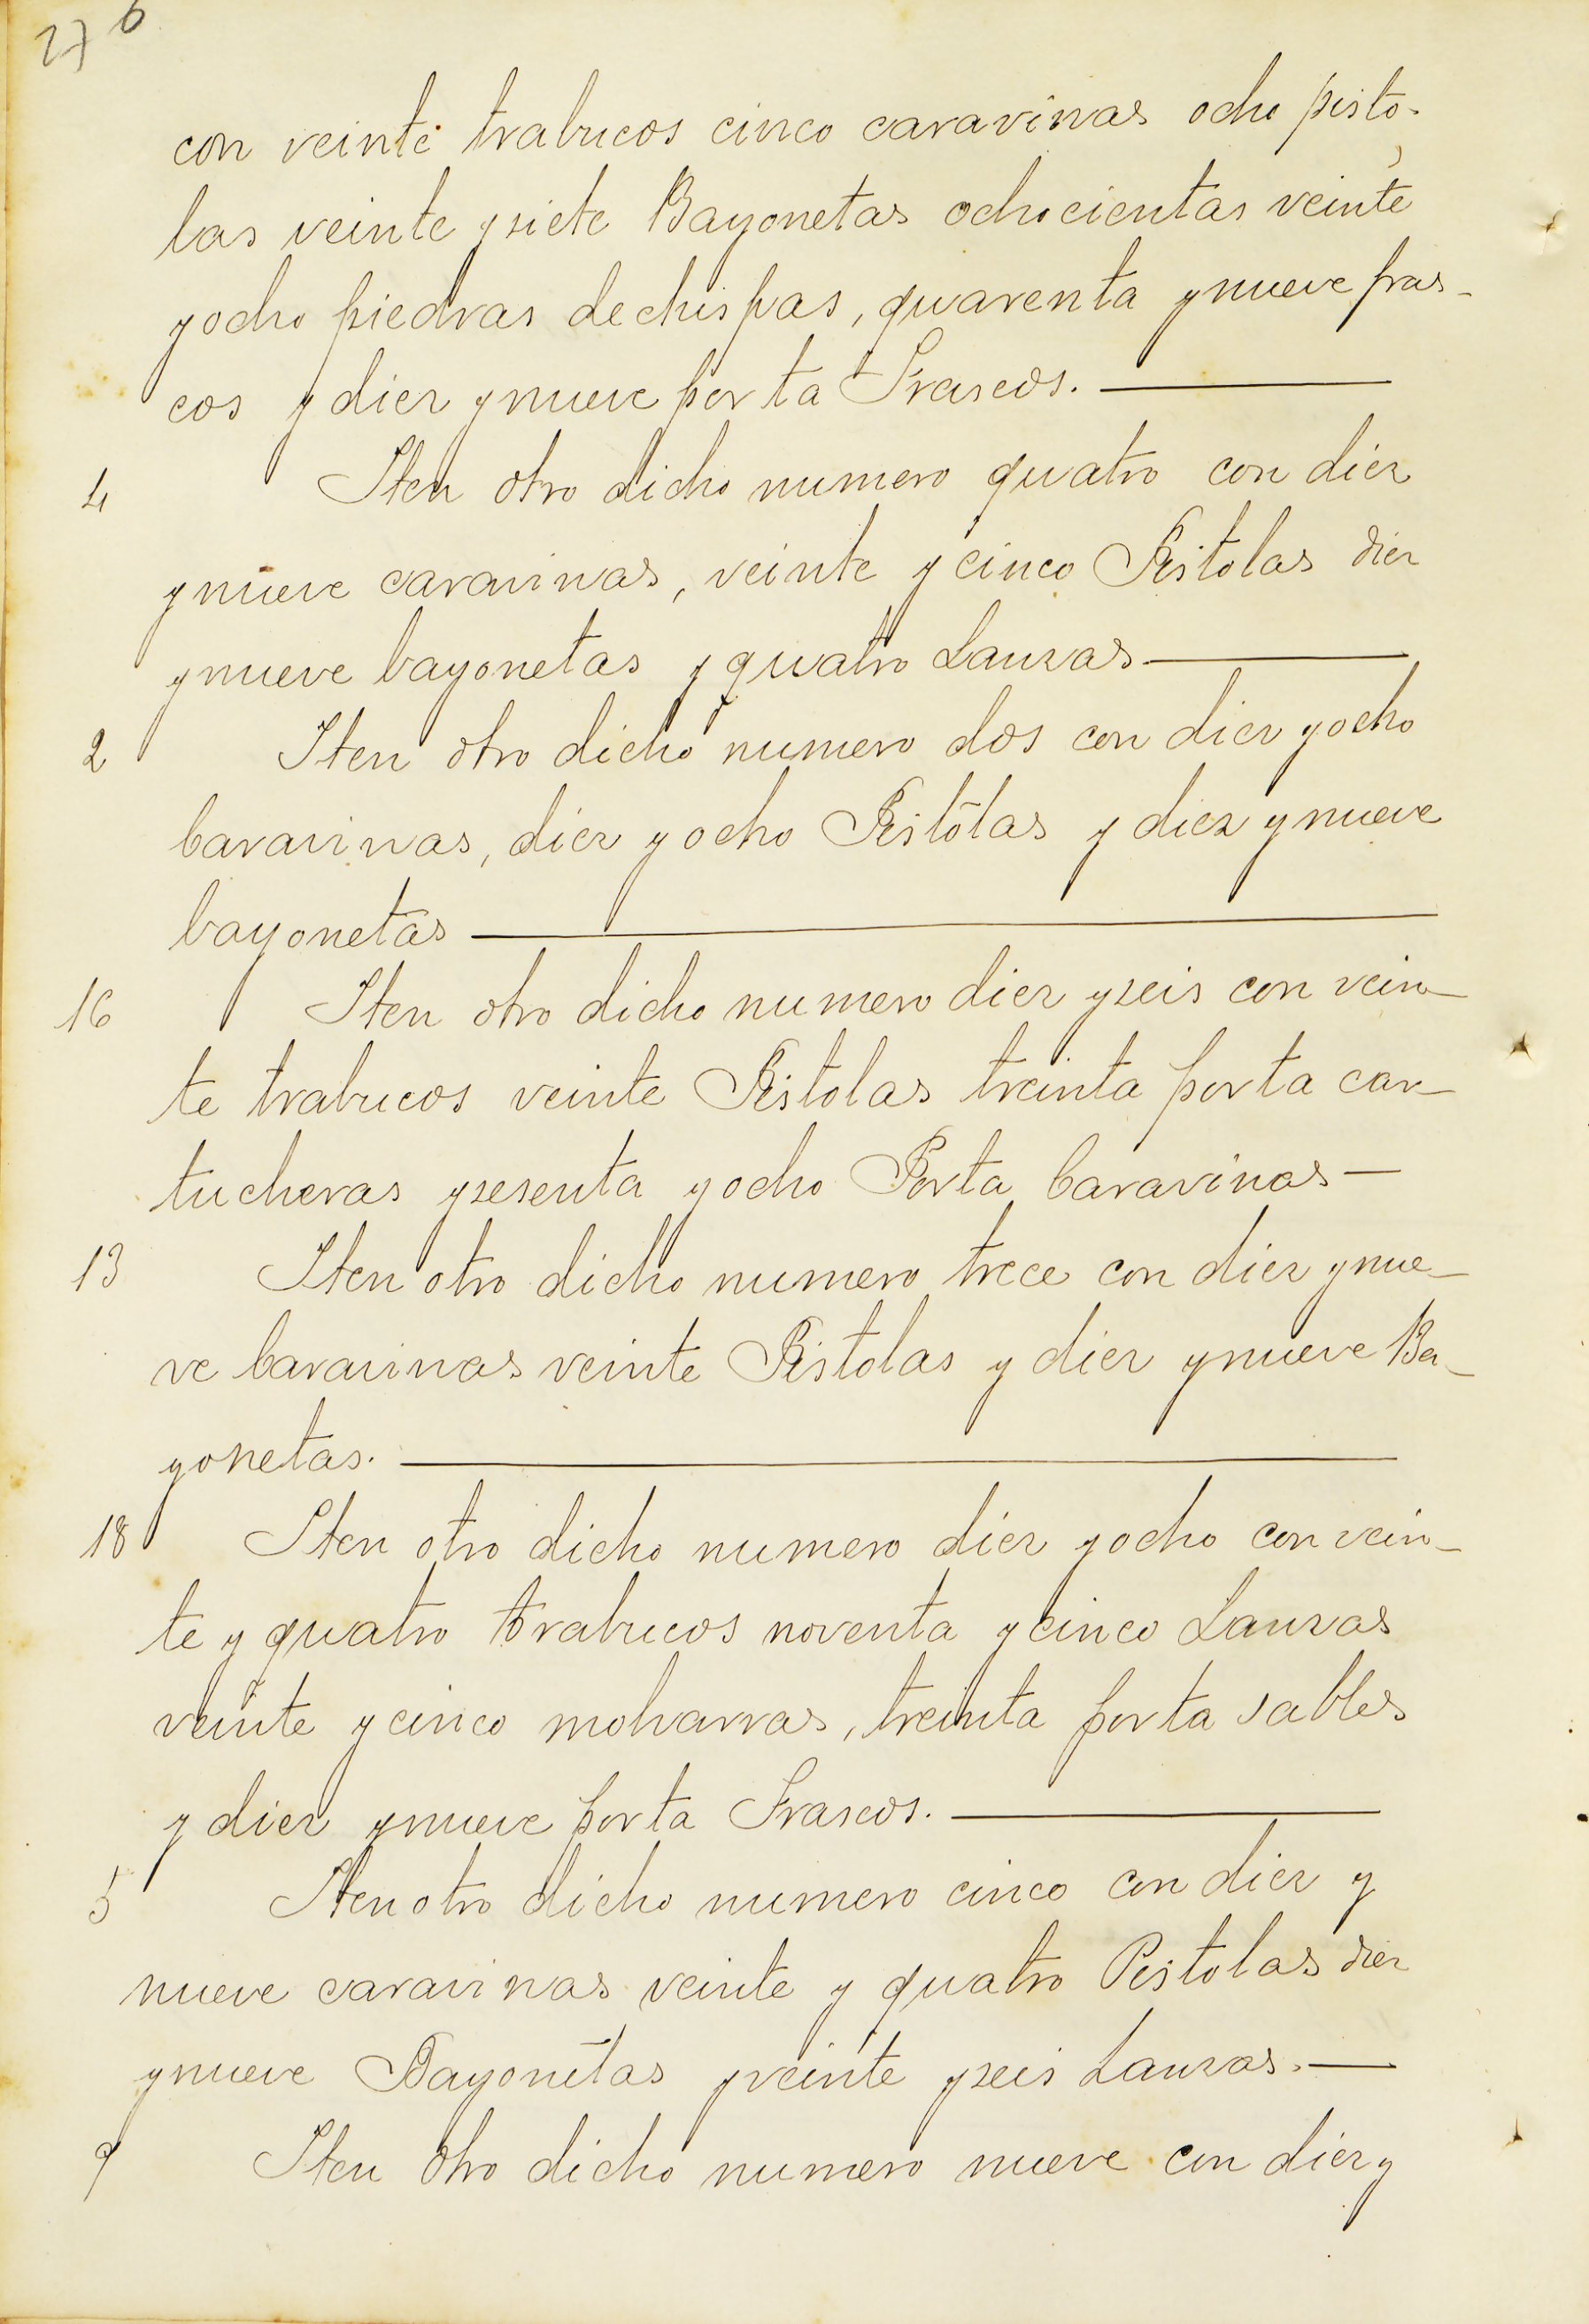 276
con veinte trabucos cinco caravinas ocho pisto-
las veinte y siete Bayonetas ochocientas veinte
y ocho piedras de chispas, quarenta y nueve fras-
cos y diez y nueve porta Frascos.
4 Iten otro dicho numero quatro con diez
y nueve caravinas, veinte y cinco Pistolas diez
y nueve bayonetas y quatro Lanzas
2 Iten otro dicho numero dos con diez y ocho
Caravinas, diez y ocho Pistolas y diez y nueve
bayonetas
16 Iten otro dicho numero diez y seis con vein-
te trabucos veinte Pistolas treinta porta car-
tucheras y sesenta y ocho Porta Caravinas
13 Iten otro dicho numero trece con diez y nue-
ve Caravinas veinte Pistolas y diez y nueve Ba-
yonetas.
18 Iten otro dicho numero diez y ocho con vein-
te y quatro trabucos noventa y cinco Lanzas
veinte y cinco moharras, treinta porta sables
y diez y nueve porta Frascos.
5 Iten otro dicho numero cinco con diez y
nueve caravinas veinte y quatro Pistolas diez
y nueve Bayonetas y veinte y seis Lanzas.
9 Iten otro dicho numero nueve con diez y